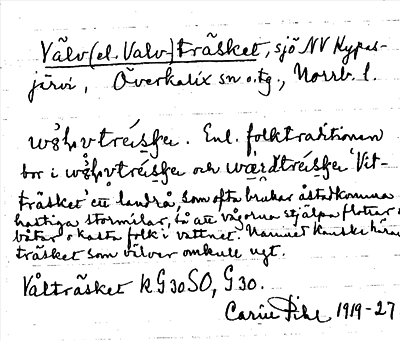 Välv (el. Valv) träsket, sjö NV Hypas-
järvi, Överkalix sn o. tg., Norrb. l.
Enl. folktraditionen
bor i och 'Vit-
träsket' ett landrå, som ofta brukar åstadkomma
hastiga stormilar, så att vågorna stjälpa flottar o
båtar o kasta folk i vattnet. Namnet kanske
träsket som välver omkull ngt.
Vålträsket k G30SO, G30.
Carin Pihl 1919-27